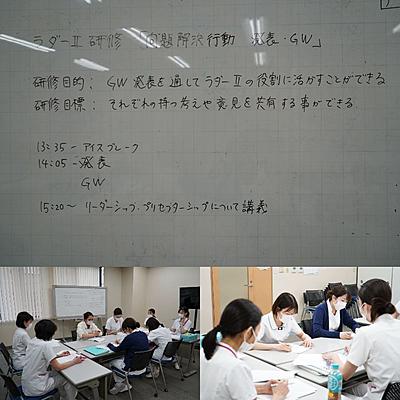 ラダーⅡ研修 「問題解決行動 発表・GW」
研修目的: GW発表を通してラダーⅡの役割に活かすことができる
研修目標: それぞれの持つ考えや意見を共有する事ができる
13:35- アイスブレーク
14:05- 発表
GW
15:20〜 リーダーシップ・プリセプターシップについて講義